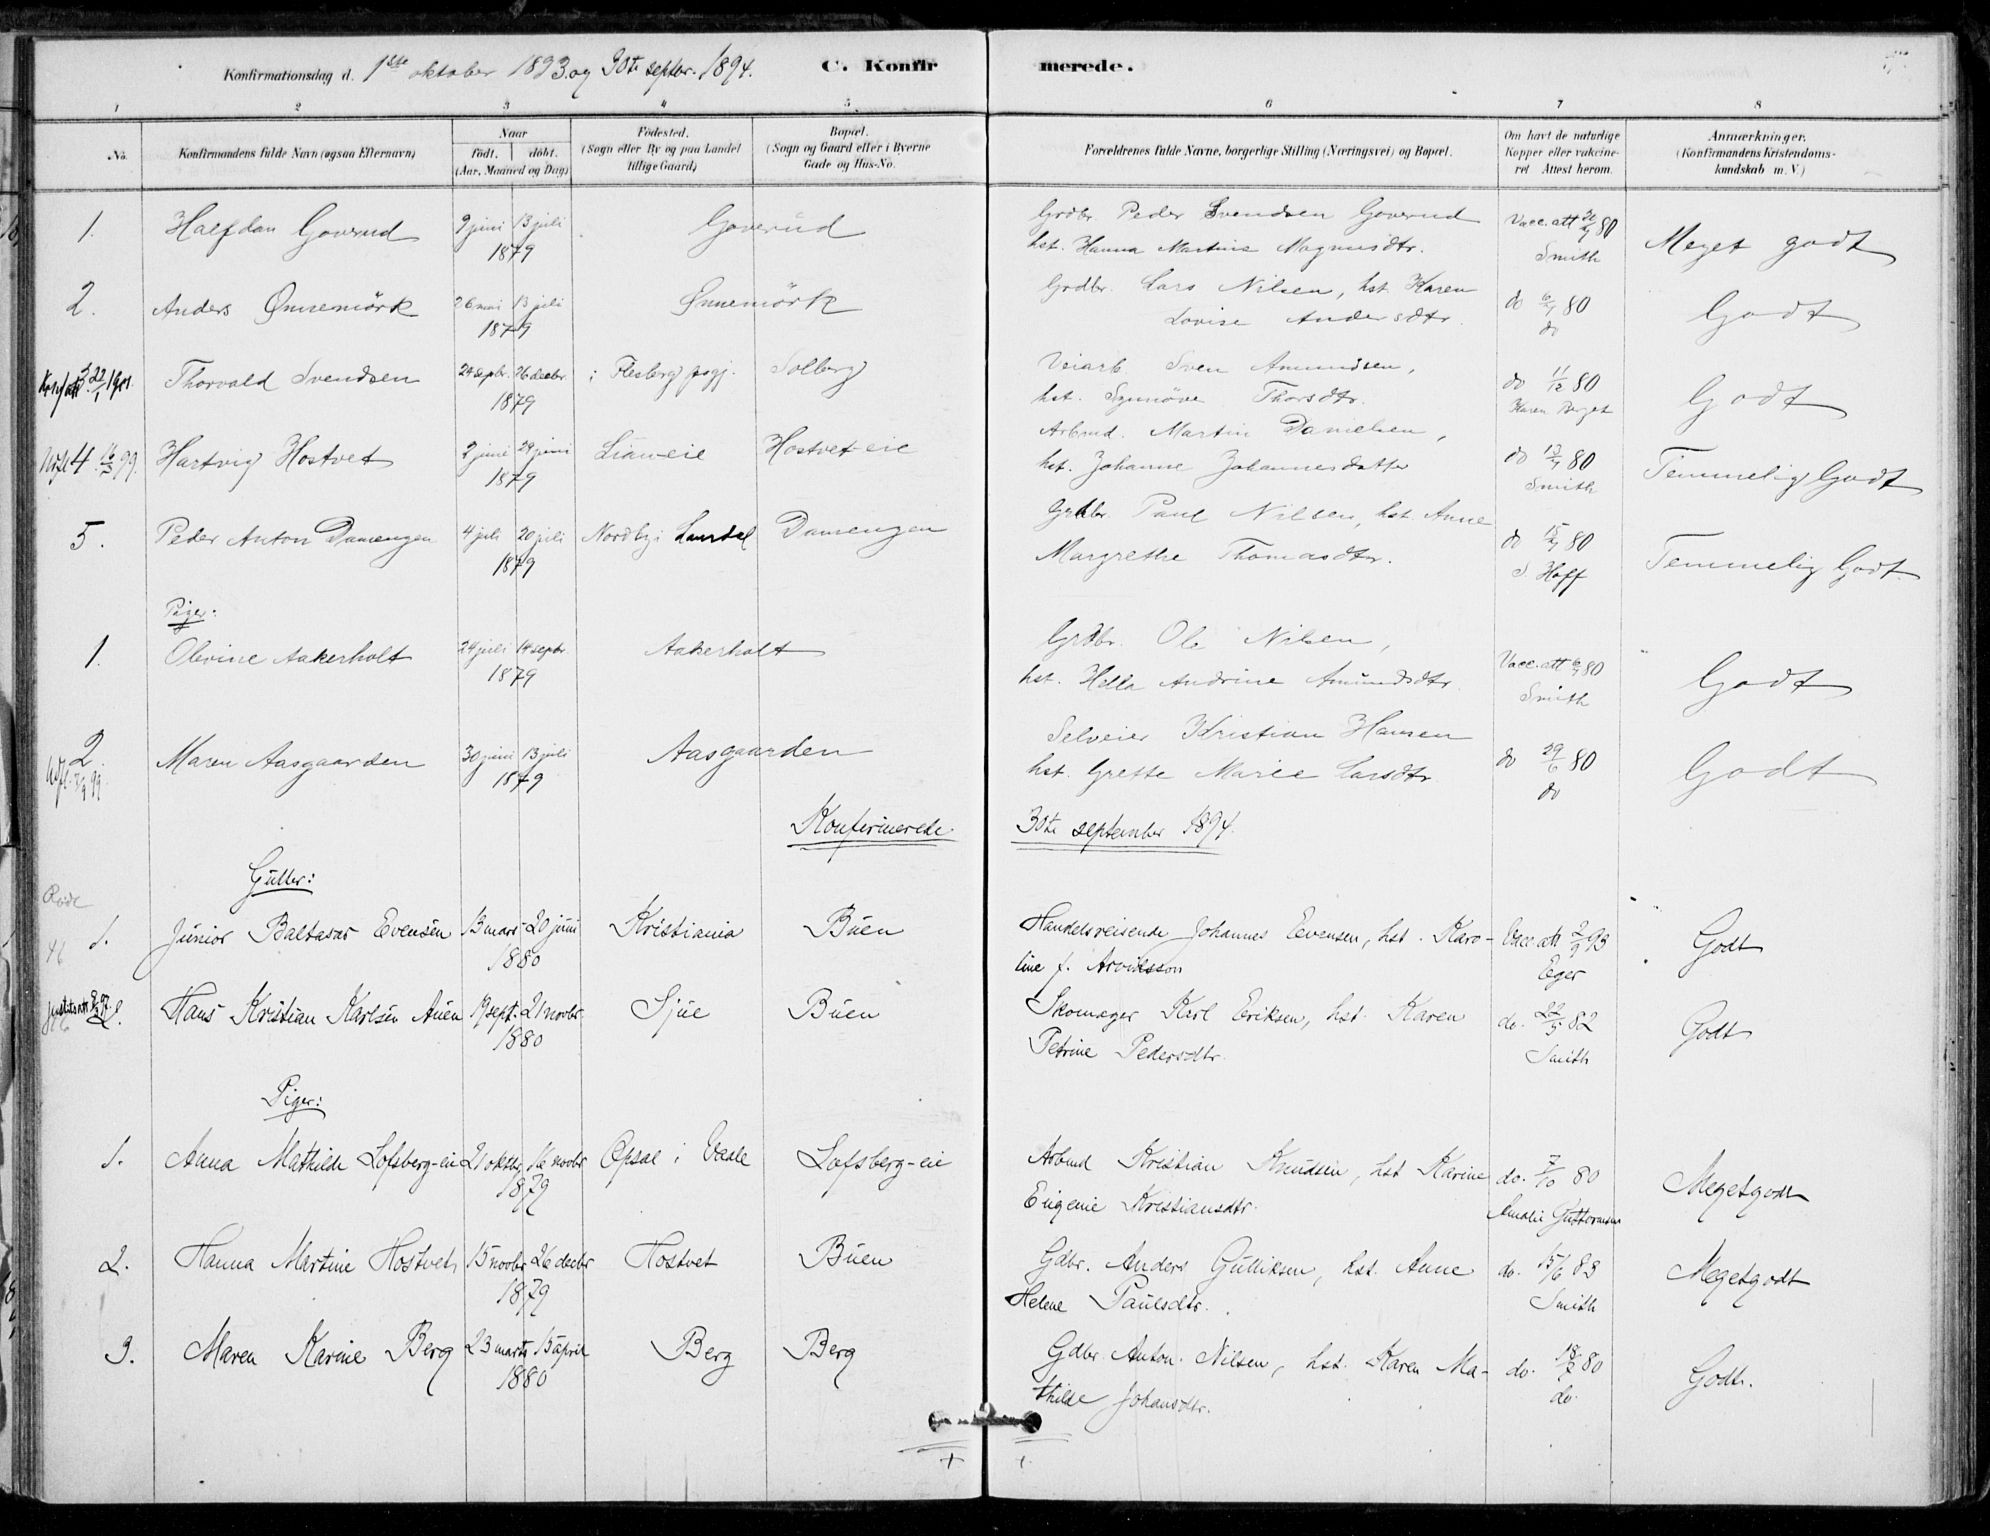 Konfirmationsdag d. 1ste oktober 1893 og 30te septbr. 1894. C. Konfirmerede.
1 2 3 4 5 6 7 8
No. Konfirmandens fulde Navn (ogsaa Efternavn) Naar födt. döbt. (Aar, Maaned og Dag) Födested. (Sogn eller By og paa Landet tillige Gaard) Bopæl. (Sogn og Gaard eller i Byerne Gade og Hus-No. Forældrenes fulde Navne, borgerlige Stilling (Næringsvei) og Bopæl. Om havt de naturlige Kopper eller vakcineret Attest herom. Anmærkninger. (Konfirmandens Kristendomskundskab m. V.)
1. Halfdan Goverud 9 juni 13 juli 1879 Goverud Grdbr. Peder Svendsen Goverud
hst. Hanna Martine Magnusdtr. Vacc. att 80 Smith Meget godt
2. Anders Ønnemörk 26 mai 13 juli 1879 Ønnemörk Grdbr. Lars Nilsen, hst. Karen
Lovise Andersdtr. do 80 do Godt
3. 22/1 1901. Thorvald Svendsen 24 sepbr. 26 decbr. 1879 i Flesberg prgj. Solberg Veiarb. Sven Amundsen,
hst. Synnöve Thorsdtr. do 11/12 80 Karen Berget Godt
4. Hartvig Hostvet 2 juni 29 juni 1879 Lian-eie Hostvet-eie Arbmd. Martin Danielsen,
hst. Johanne Johannesdatter do 80 Smith Temmelig Godt
5. Peder Anton Damengen 4 juli 20 juli 1879 Nordby i Damengen Grdbr. Paul Nilsen, hst. Anne
Margrethe Thomasdtr. do 80 S. Hoff Temmelig Godt.
Piger:
1. Olevine Aakerholt 24 juli 14 sepbr. 1879 Aakerholt Grdbr. Ole Nilsen,
hst. Hella Andrine Amundsdtr. Vacc. att 80 Smith Godt
2. Maren Aasgaarden 30 juni 13 juli 1879 Aasgaarden Selveier Kristian Hansen
hst. Grethe Marie Larsdtr. do 29/6 80 do Godt
Konfirmerede 30te september 1894.
Gutter:
1. Junior Baltasar Evensen 13 mars 20 juni 1880 Kristiania Buen Handelsreisende Johannes Evensen, hst. Karo-
line f. Arviksson Vacc. att 2/9 93 Eger Godt
2. Hans Kristian Karlsen Auen sept. 21 novbr. 1880 Sjue Buen Skomager Karl Eriksen, hst. Karen
Petrine Pedersdtr. do. 22/5 82 Smith Godt
Piger:
1. Anna Mathilde Lofsberg-eie 21 oktbr. 16 novbr 1879 Opsal i Vaale Lofsberg-eie Arbmd Kristian Knudsen, hst Karine
Eugenie Kristiansdtr. do. 7/10 80 Amalie Guttormsen Megetgodt
2. Hanna Martine Hostvet 15 novbr 26 decbr 1879 Hostvet Buen Gdbr. Anders Gulliksen, hst. Anne
Helene Paulsdtr. do. 15/6 83 Smith Megetgodt
3. Maren Karine Berg 23 marts 15 april 1880 Berg Berg Gdbr. Anton Nilsen, hst. Karen Ma-
thilde Johansdtr. do. 80 do. Godt.